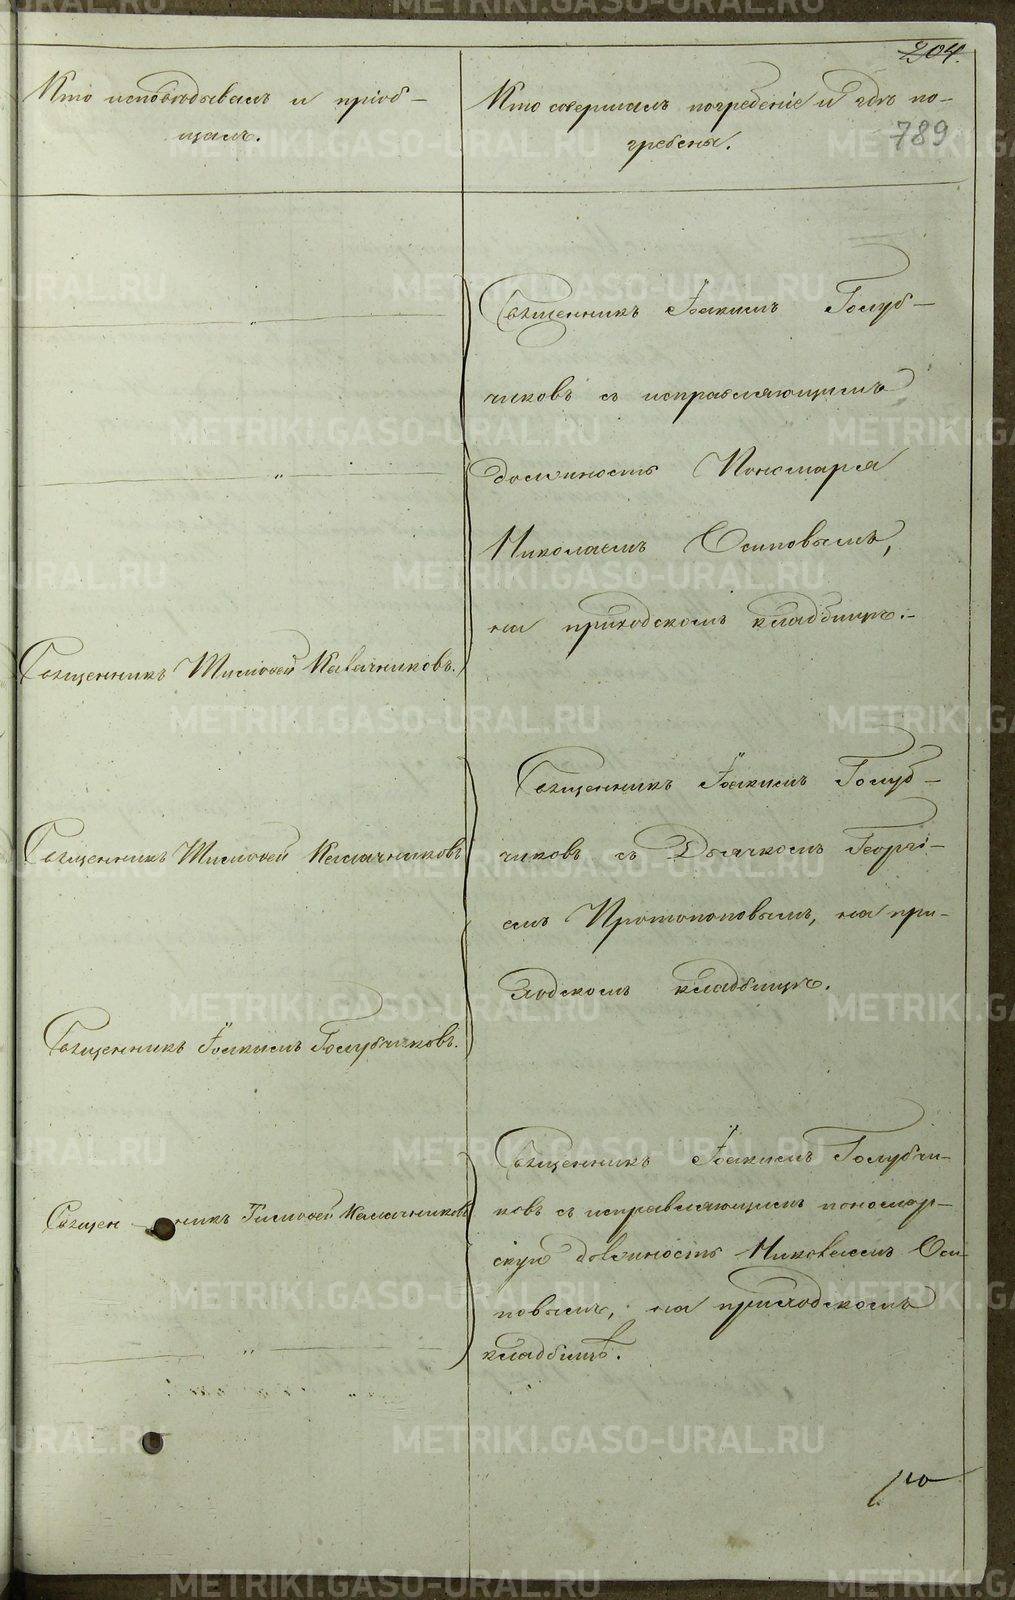 204.
789
Кто исповѣдывалъ и пріоб-
щалъ.
Кто совершалъ погребеніе и гдѣ по-
гребены.
Священникъ Іоакимъ Голуб-
чиковъ съ исправляющимъ
должность Пономаря
Николаемъ Осиповымъ,
на приходскомъ кладбищѣ.-
Священникъ Тимофей Калачниковъ.
Священникъ Іоакимъ Голуб-
Священникъ Тимофей Калачниковъ
чиковъ съ Дьячкомъ Георгі-
емъ Протопоповымъ, на при-
ходскомъ кладбищѣ.
Священникъ Іоакимъ Голубчиковъ.
Священникъ Іоакимъ Голубчи-
Священ - никъ Тимофей Калачниковъ
ковъ съ исправляющимъ пономар-
скую должность Николаемъ Оси-
повымъ, на приходскомъ
кладбищѣ.
METRIKI.GASO-URAL.RU